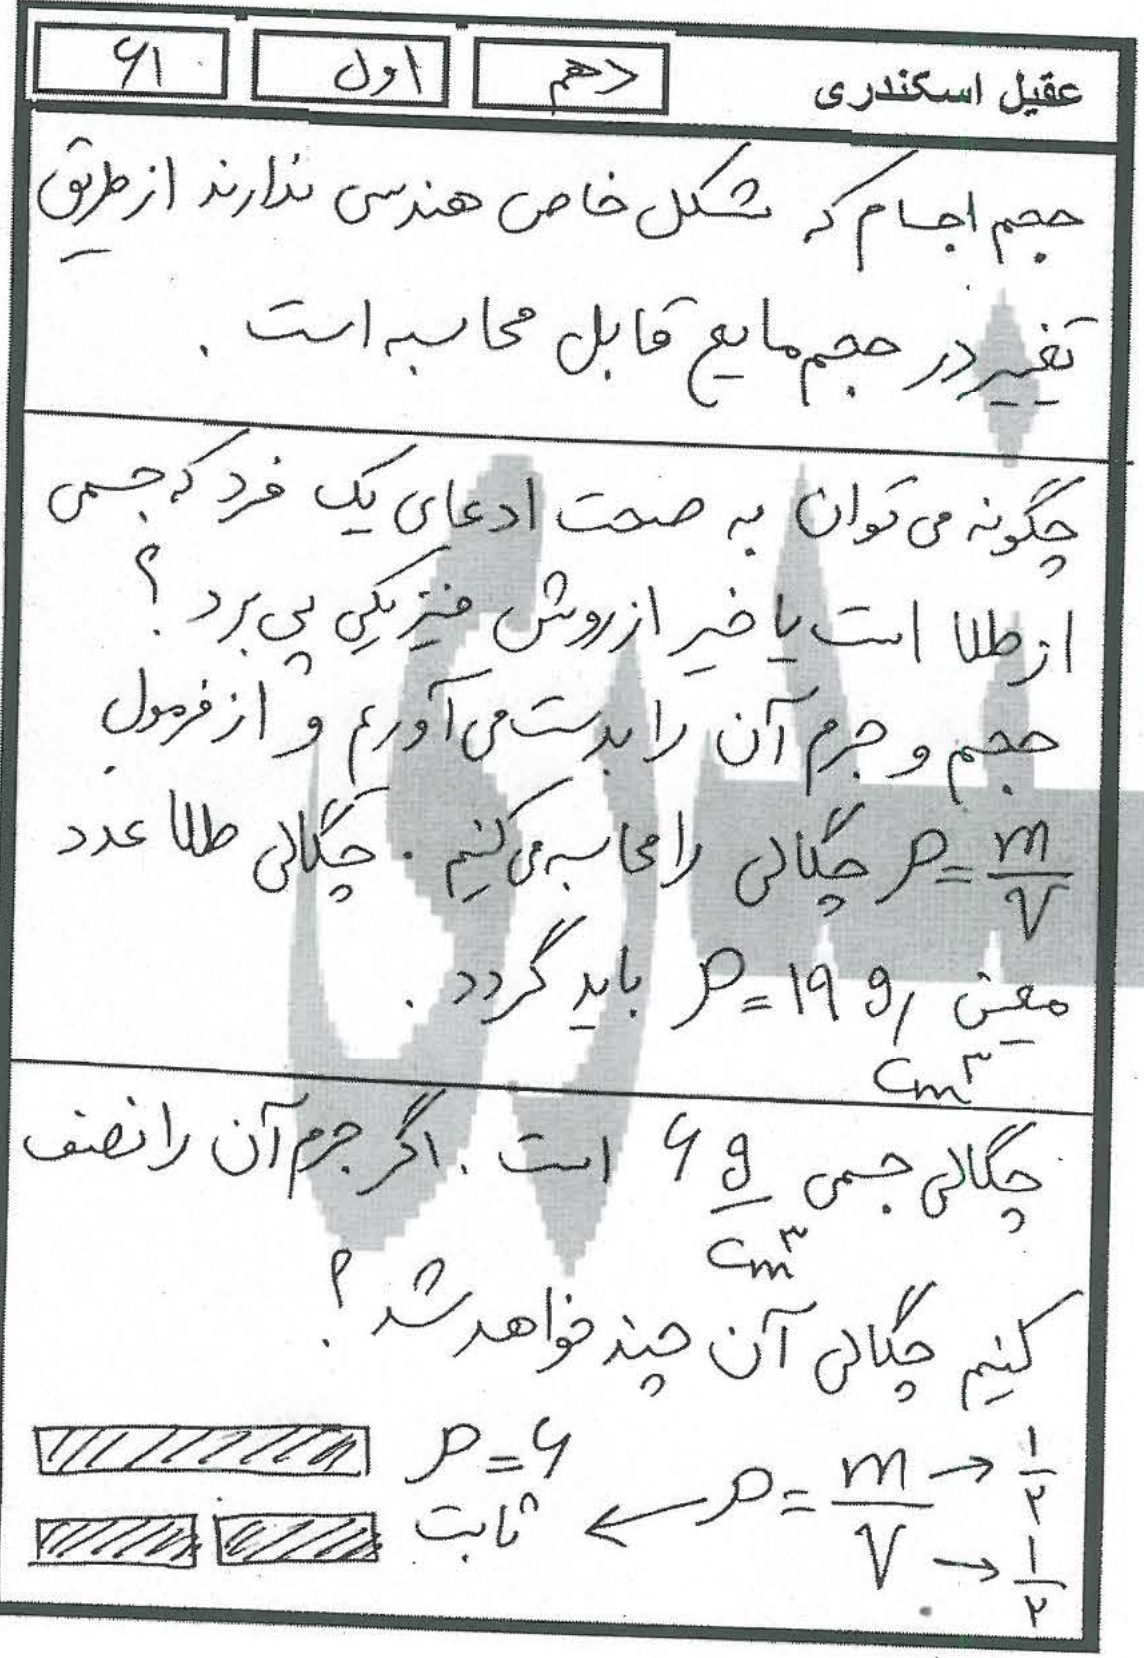 عقیل اسکندری
دهم
اول
۶۱
حجم اجسام که شکل خاص هندسی ندارند از طریق
تغییر در حجم مایع قابل محاسبه است .
چگونه می توان به صحت ادعای یک فرد که جسمی
از طلا است یا خیر از روش فیزیکی پی برد ؟
حجم و جرم آن را بدست می آوریم و از فرمول
ρ = m/V چگالی را محاسبه می کنیم . چگالی طلا عدد
معین ρ = ۱۹ g/cm³ باید گردد .
چگالی جسمی ۶ g/cm³ است . اگر جرم آن را نصف
کنیم چگالی آن چند خواهد شد ؟
ρ = m/V → ۱/۲ → ۱/۲
ρ = ۶
ثابت